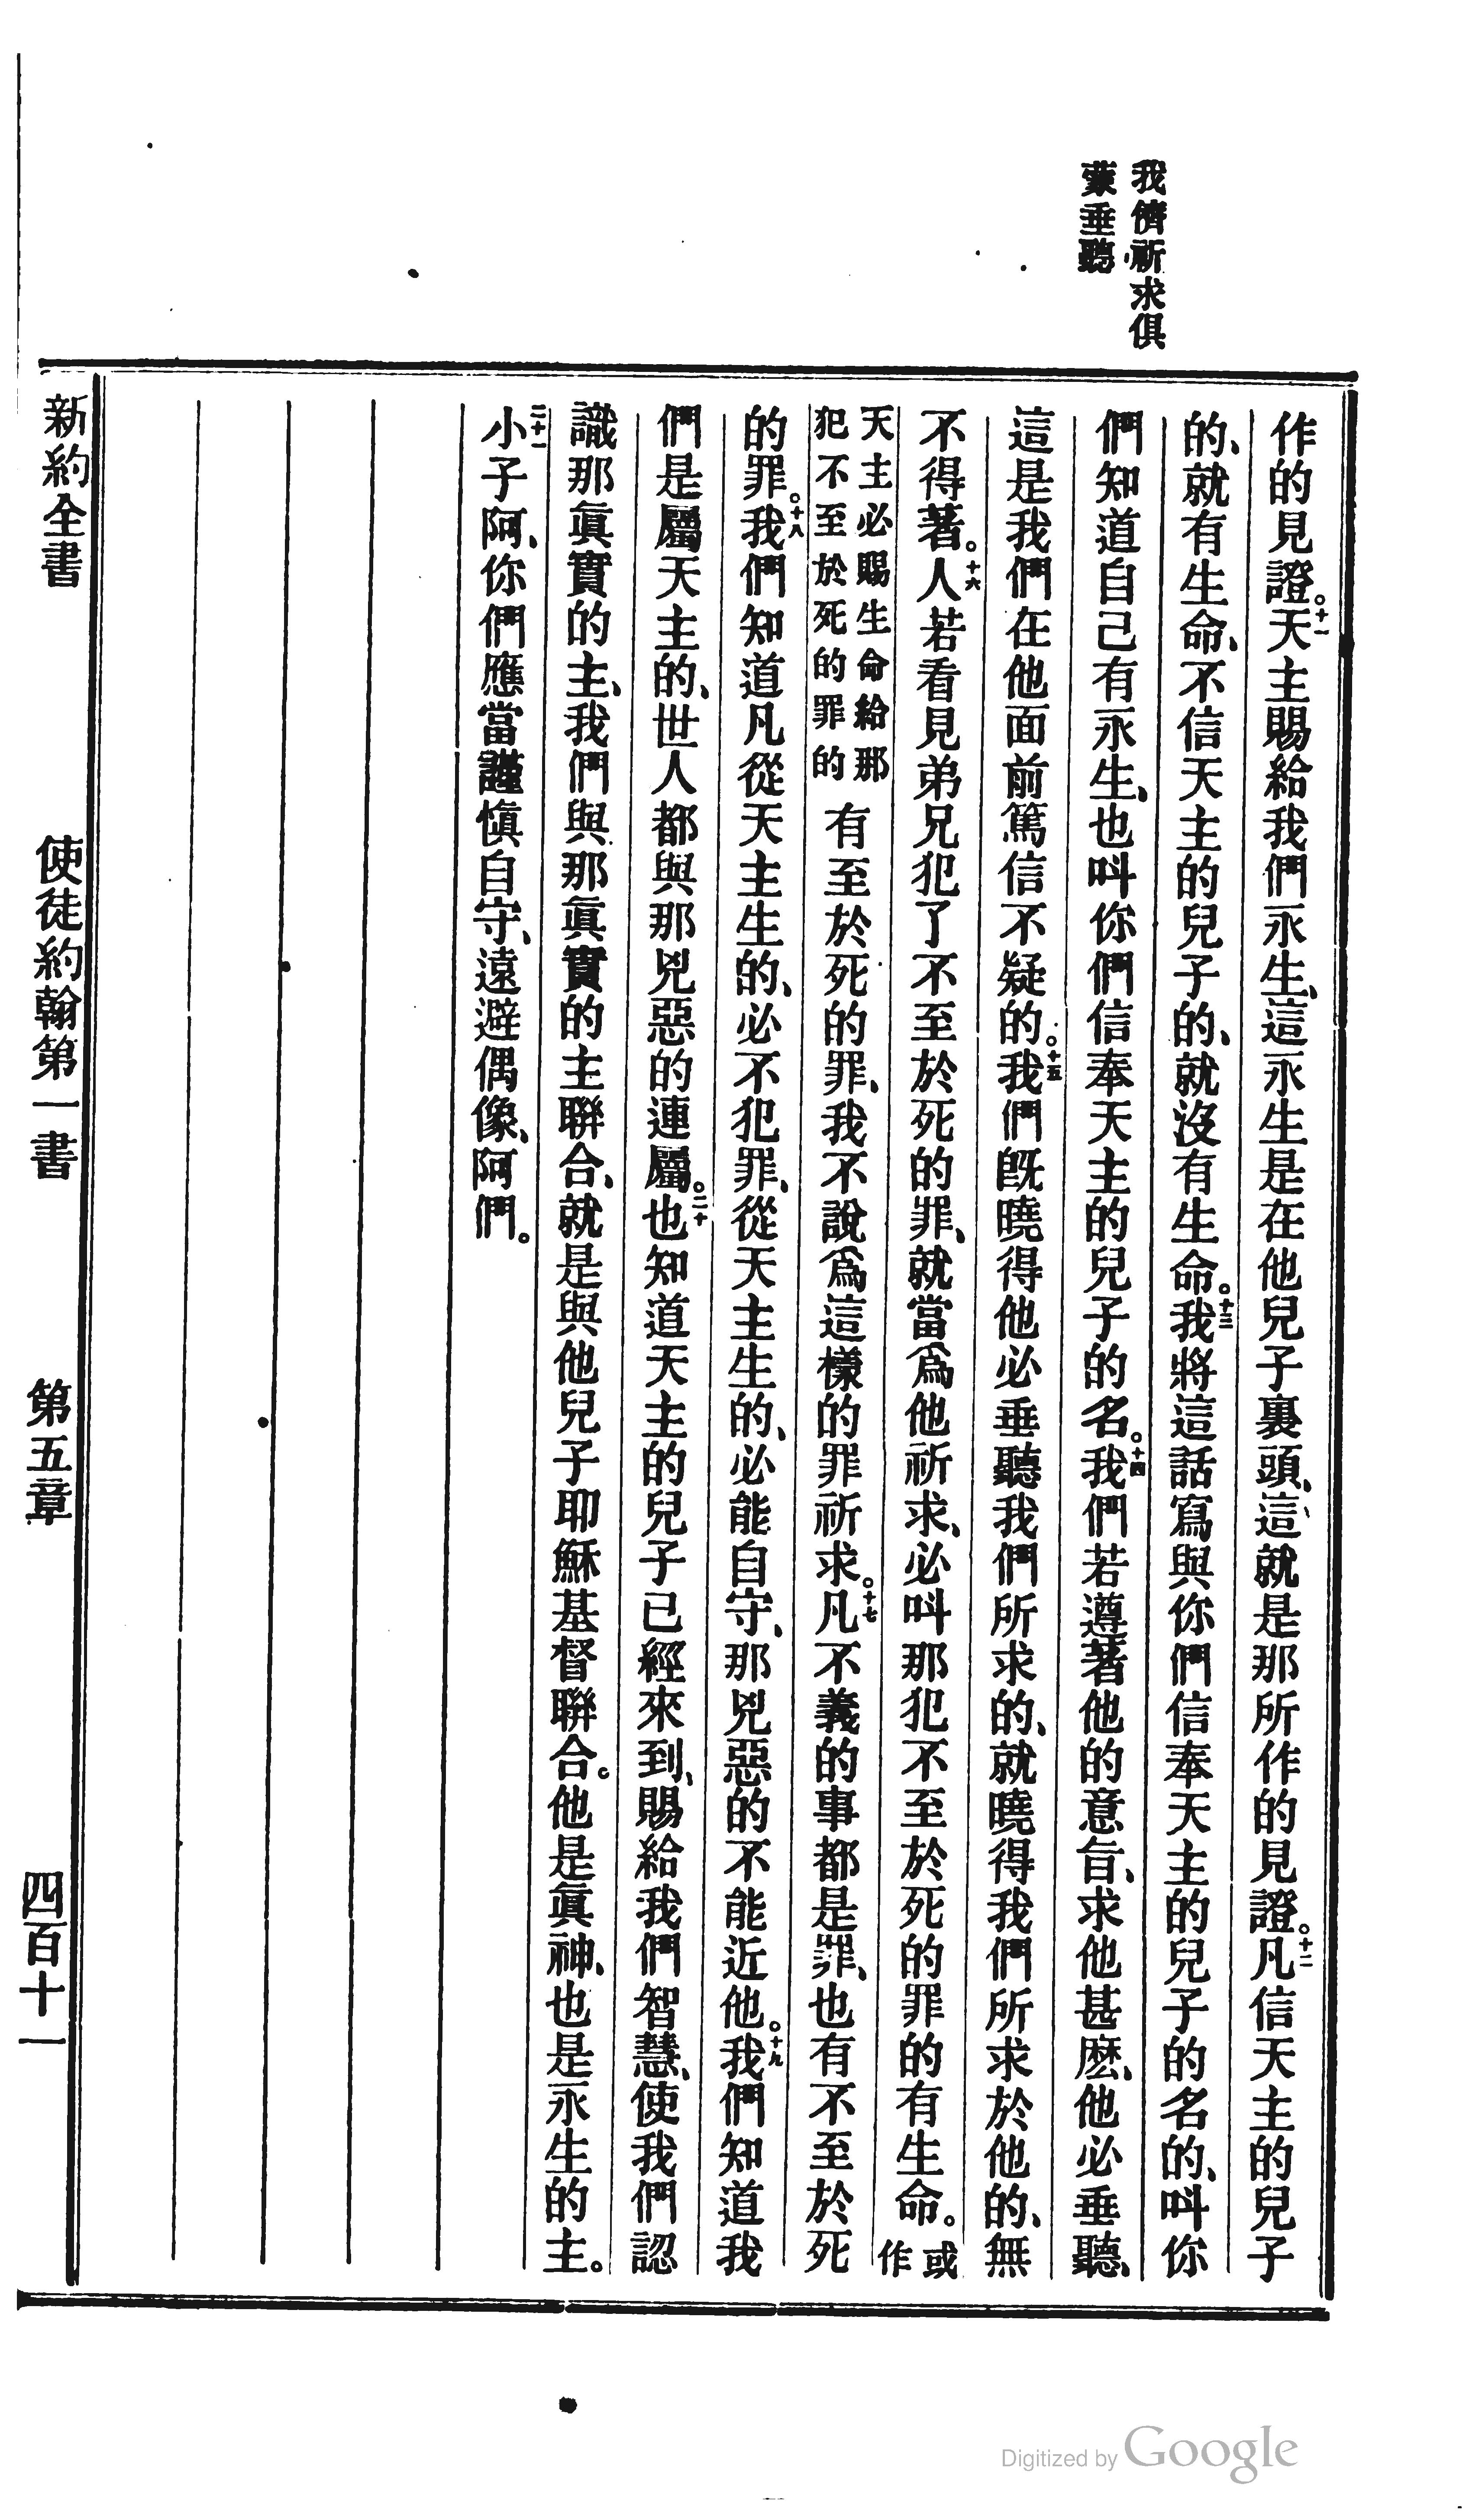 我儕祈求俱
蒙垂聽
作的見證。十一天主賜給我們永生、這永生是在他兒子裏頭、這就是那所作的見證。十二凡信天主的兒子
的、就有生命、不信天主的兒子的、就沒有生命。十三我將這話寫與你們信奉天主的兒子的名的、叫你
們知道自己有永生、也叫你們信奉天主的兒子的名。十四我們若遵著他的意旨、求他甚麽、他必垂聽、
這是我們在他面前篤信不疑的。十五我們旣曉得他必垂聽我們所求的、就曉得我們所求於他的、無
不得著。十六人若看見弟兄犯了不至於死的罪、就當爲他祈求、必叫那犯不至於死的罪的有生命。或作
天主必賜生命給那犯不至於死的罪的有至於死的罪、我不說爲這樣的罪祈求。十七凡不義的事都是罪、也有不至於死
的罪。十八我們知道凡從天主生的、必不犯罪、從天主生的、必能自守、那兇惡的不能近他。十九我們知道我
們是屬天主的、世人都與那兇惡的連屬。二十也知道天主的兒子已經來到、賜給我們智慧、使我們認
識那眞實的主、我們與那眞實的主聯合、就是與他兒子耶穌基督聯合。他是眞神、也是永生的主。
二十一小子阿、你們應當謹愼自守、遠避偶像、阿們。
新約全書 使徒約翰第一書 第五章 四百十一
Digitized by Google